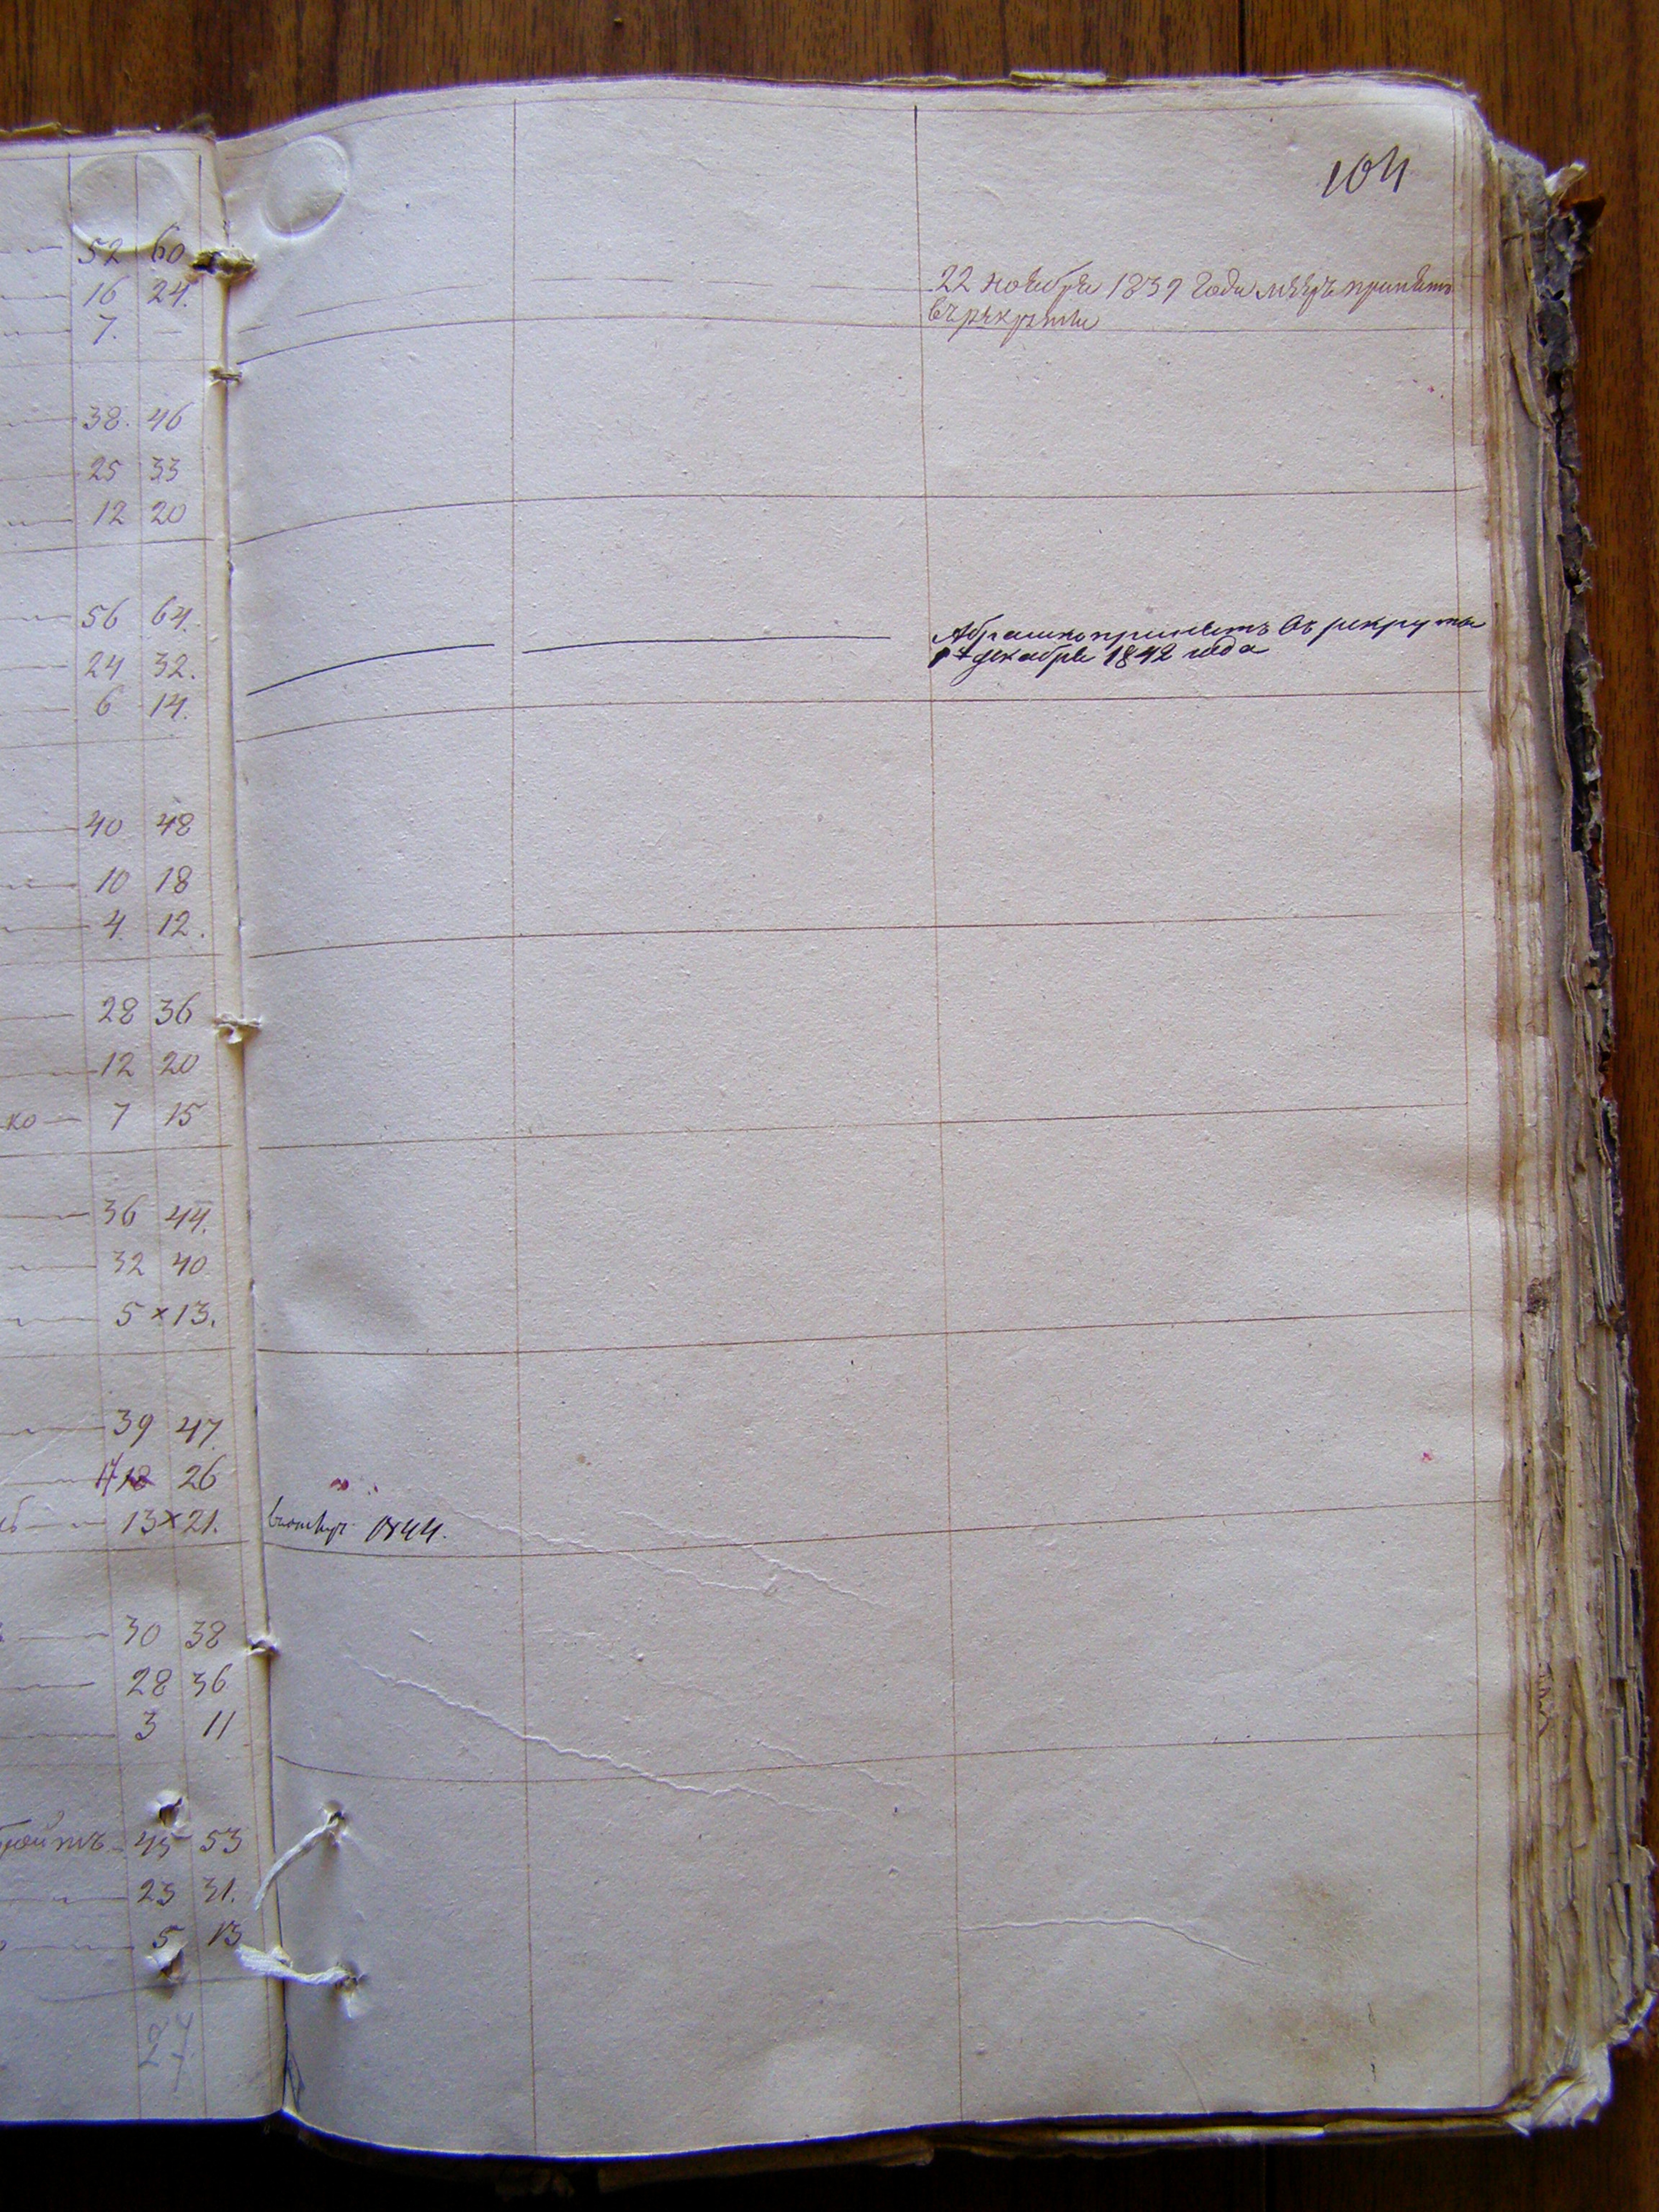 104
52 60
16 24.
7. —
22 ноября 1839 года принятъ
въ рекруты
38. 46
25 33
12 20
56 64.
24 32.
6 14.
Абрашко принятъ въ рекруты
декабря 1842 года
40 48
10 18
4. 12.
28 36
12 20
ко — 7 15
36 44.
32 40
5 × 13.
39 47.
17 18 26
13 × 21.
1844.
30 38
28 36
3 11
45 53
23 31.
5 13